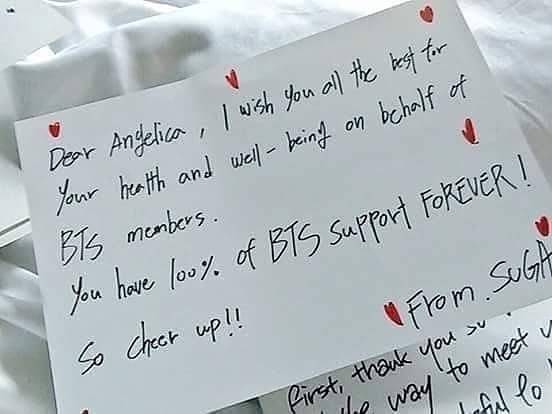 Dear Angelica, I wish you all the best for
your health and well-being on behalf of
BTS members.
You have 100% of BTS support FOREVER!
So cheer up!!
From. SUGA
first, thank you
way to meet